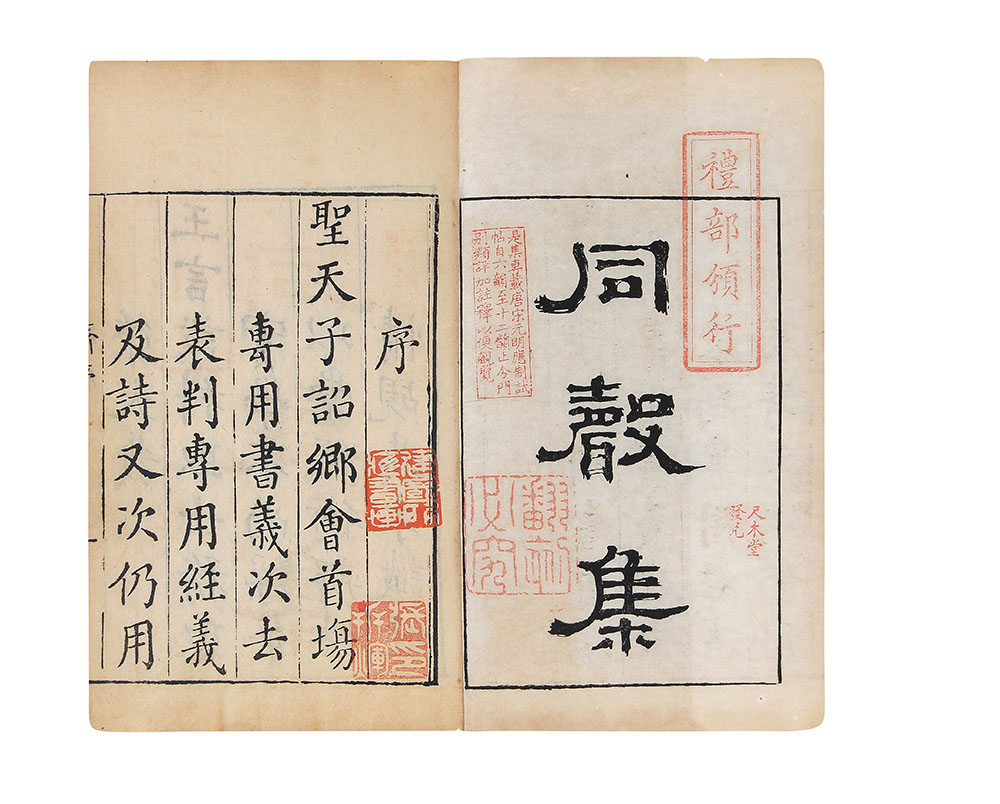 禮部頒行
尺木堂
發兌
同聲集
是集專載唐宋元明應制試
帖自六韻至十二韻止分門
別類詳加註釋以便觀覽
翻刻
必究
序
聖天子詔鄉會首場
專用書義次去
表判專用經義
及詩又次仍用